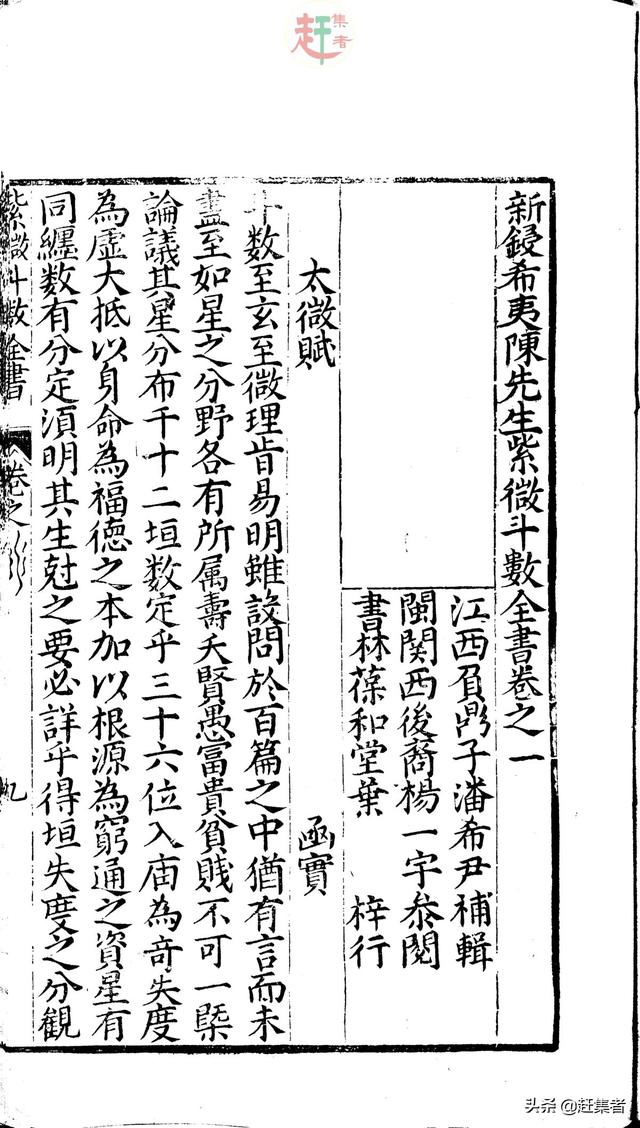 赶集者
新鋟希夷陳先生紫微斗數全書卷之一
江西負鼎子潘希尹補輯
閩関西後裔楊一宇叅閱
書林葆和堂葉　梓行
太微賦　函實
斗数至玄至微理㫖易明雖設問於百篇之中猶有言而未
盡至如星之分野各有所属壽夭賢愚富貴貧賎不可一槩
論議其星分布千十二垣数定乎三十六位入庙為竒失度
為虛大抵以身命為福德之本加以根源為窮通之資星有
同纏数有分定湏明其生尅之要必詳乎得垣失度之分觀
紫微斗數全書　卷之　九
头条 @赶集者